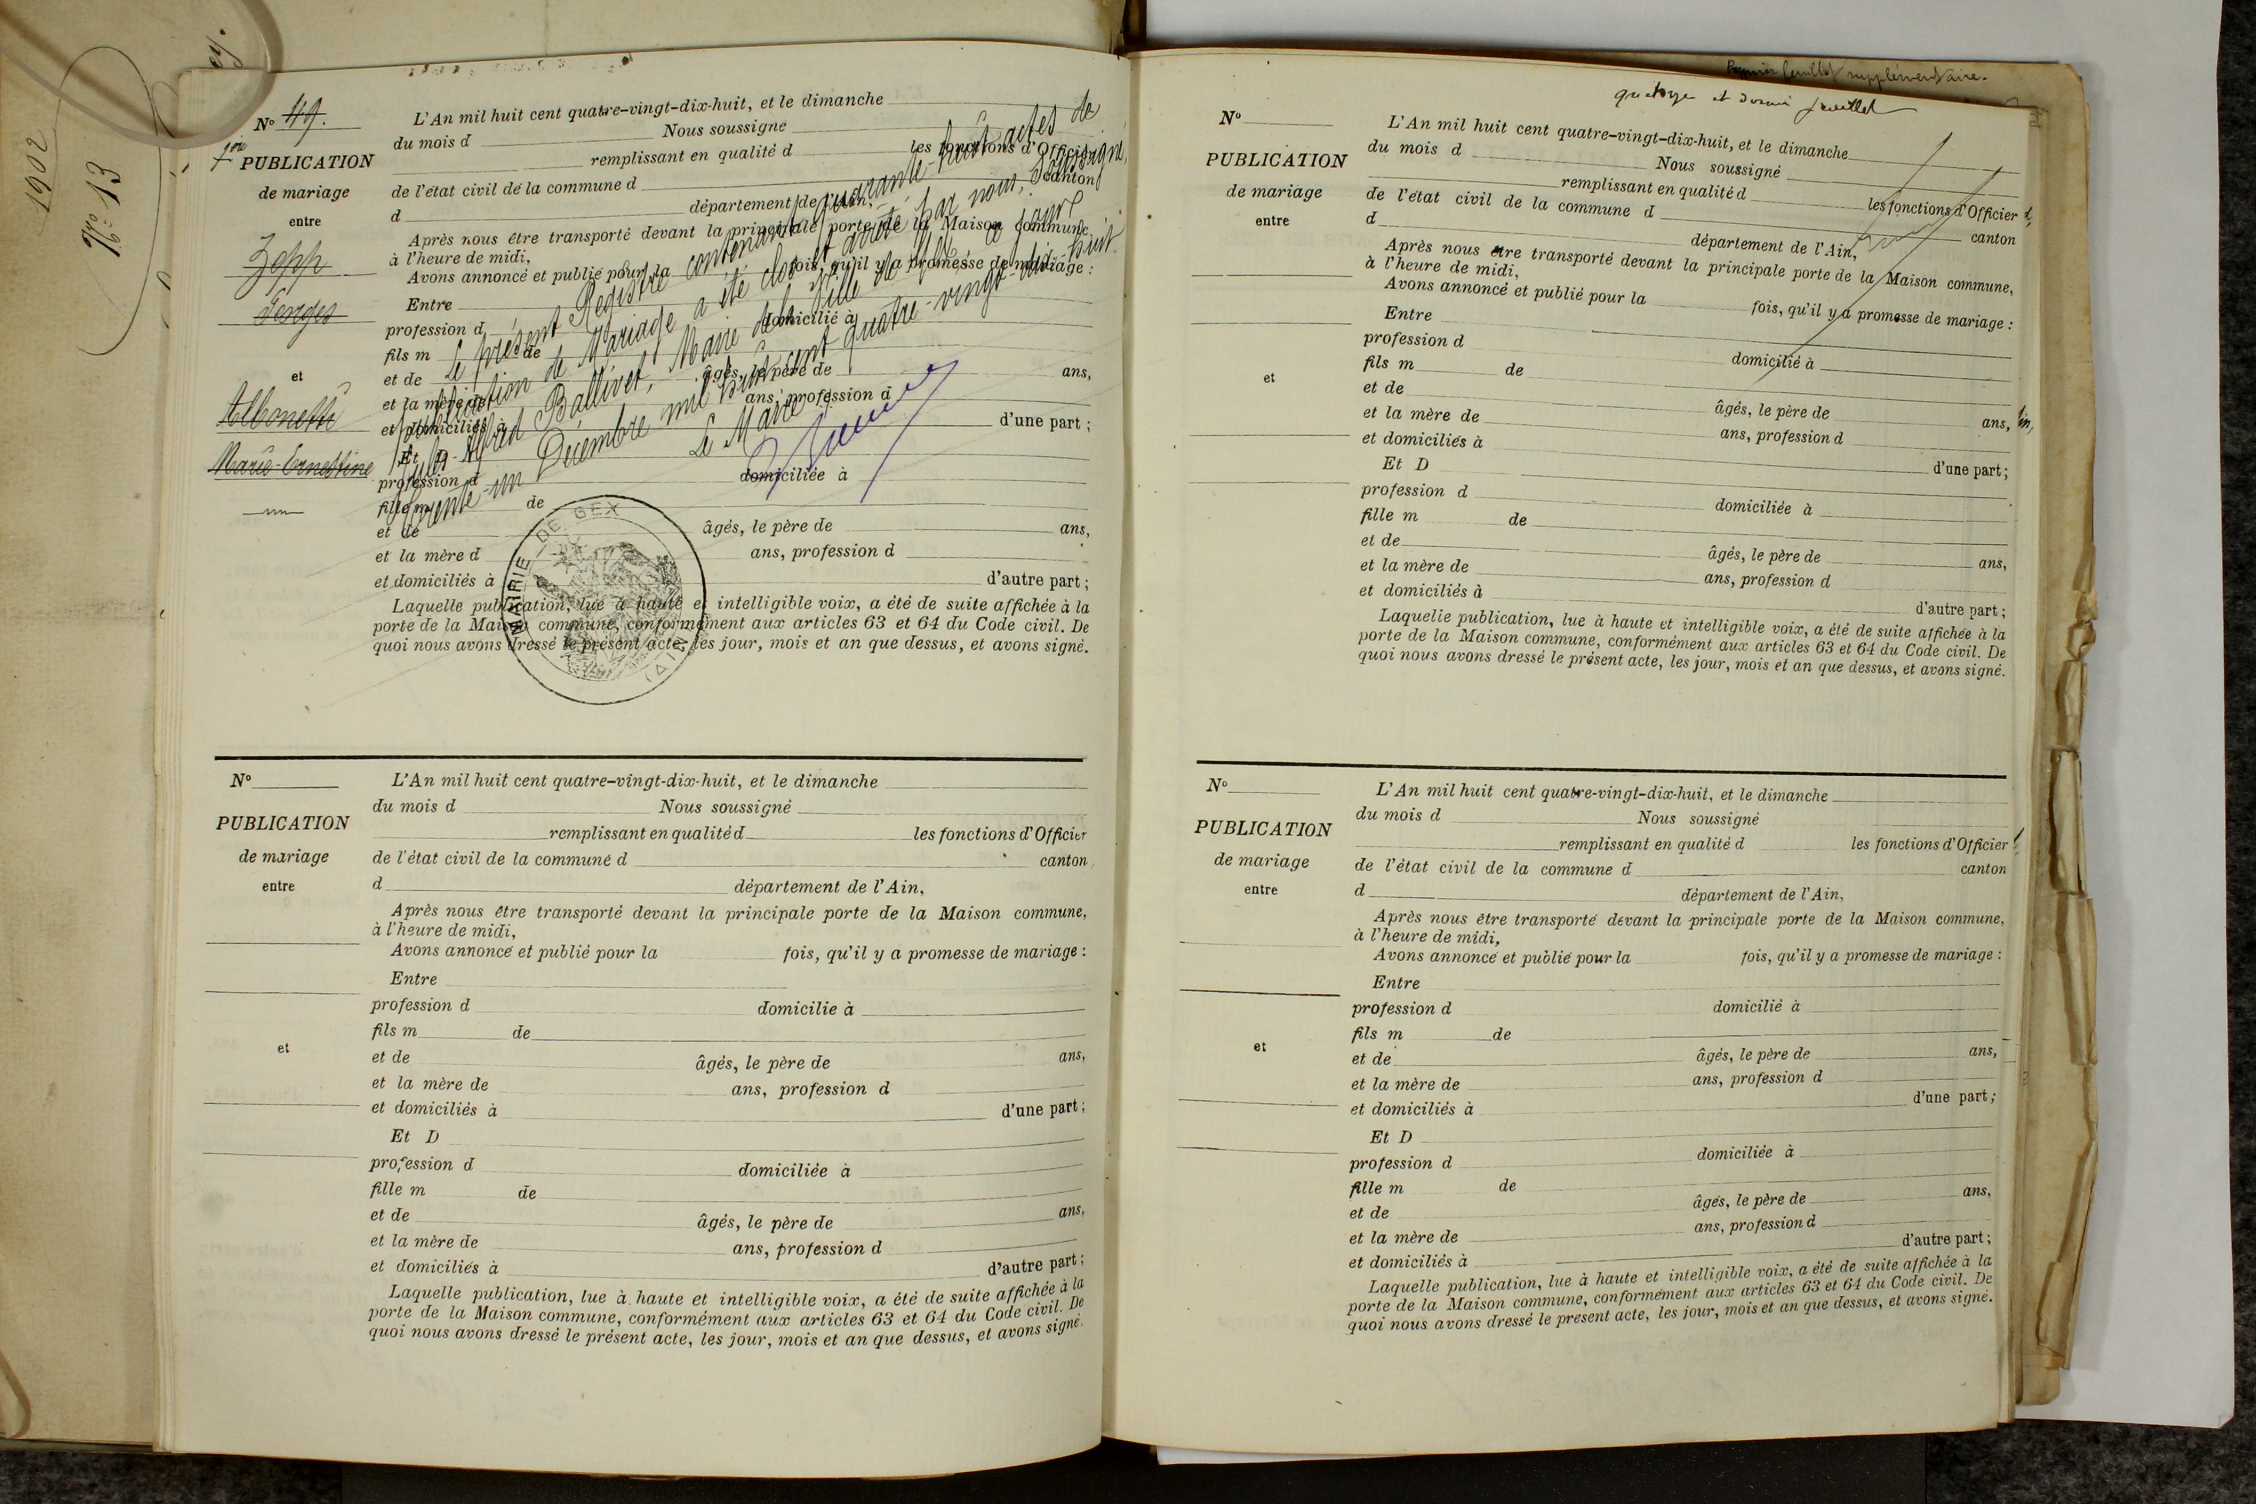 1902
No 13
ey.
No 49.
1ère
PUBLICATION
de mariage
entre
Zopp
Senges
et
Albonetti
Marie-Ernestine
L'An mil huit cent quatre-vingt-dix-huit, et le dimanche
du mois d Nous soussigné
remplissant en qualité d les fonctions d'Officier
de l'état civil de la commune d canton
d département de l'Ain,
Après nous être transporté devant la principale porte de la Maison commune,
à l'heure de midi,
Avons annoncé et publié pour la fois, qu'il y a promesse de mariage :
Entre
profession d domicilié à
fils m de
et de âgés, le père de ans,
et la mère de ans, profession d
et domiciliés à d'une part ;
Et D
profession d domiciliée à
fille m de
et de âgés, le père de ans,
et la mère d ans, profession d
et domiciliés à d'autre part ;
Laquelle publication, lue à haute et intelligible voix, a été de suite affichée à la
porte de la Maison commune, conformément aux articles 63 et 64 du Code civil. De
quoi nous avons dressé le présent acte, les jour, mois et an que dessus, et avons signé.
Le présent Registre contenant quarante-huit actes de
publication de Mariage a été clos et arrêté par nous, soussigné,
Jules-Alfred Ballivet, Maire de la Ville de Gex, ce jour
trente-un Décembre mil huit cent quatre-vingt-dix-huit.
Le Maire
MAIRIE DE GEX
(AIN)
No
PUBLICATION
de mariage
entre
et
L'An mil huit cent quatre-vingt-dix-huit, et le dimanche
du mois d Nous soussigné
remplissant en qualité d les fonctions d'Officier
de l'état civil de la commune d canton
d département de l'Ain,
Après nous être transporté devant la principale porte de la Maison commune,
à l'heure de midi,
Avons annoncé et publié pour la fois, qu'il y a promesse de mariage :
Entre
profession d domicilie à
fils m de
et de âgés, le père de ans,
et la mère de ans, profession d
et domiciliés à d'une part ;
Et D
profession d domiciliée à
fille m de
et de âgés, le père de ans,
et la mère de ans, profession d
et domiciliés à d'autre part ;
Laquelle publication, lue à haute et intelligible voix, a été de suite affichée à la
porte de la Maison commune, conformément aux articles 63 et 64 du Code civil. De
quoi nous avons dressé le présent acte, les jour, mois et an que dessus, et avons signé.
feuillet supplémentaire.
quatorze et dernier feuillet
No
PUBLICATION
de mariage
entre
et
L'An mil huit cent quatre-vingt-dix-huit, et le dimanche
du mois d Nous soussigné
remplissant en qualité d les fonctions d'Officier
de l'état civil de la commune d canton
d département de l'Ain,
Après nous être transporté devant la principale porte de la Maison commune,
à l'heure de midi,
Avons annoncé et publié pour la fois, qu'il y a promesse de mariage :
Entre
profession d domicilié à
fils m de
et de âgés, le père de ans,
et la mère de ans, profession d
et domiciliés à d'une part ;
Et D
profession d domiciliée à
fille m de
et de âgés, le père de ans,
et la mère de ans, profession d
et domiciliés à d'autre part ;
Laquelle publication, lue à haute et intelligible voix, a été de suite affichée à la
porte de la Maison commune, conformément aux articles 63 et 64 du Code civil. De
quoi nous avons dressé le présent acte, les jour, mois et an que dessus, et avons signé.
No
PUBLICATION
de mariage
entre
et
L'An mil huit cent quatre-vingt-dix-huit, et le dimanche
du mois d Nous soussigné
remplissant en qualité d les fonctions d'Officier
de l'état civil de la commune d canton
d département de l'Ain,
Après nous être transporté devant la principale porte de la Maison commune,
à l'heure de midi,
Avons annoncé et publié pour la fois, qu'il y a promesse de mariage :
Entre
profession d domicilié à
fils m de
et de âgés, le père de ans,
et la mère de ans, profession d
et domiciliés à d'une part ;
Et D
profession d domiciliée à
fille m de
et de âgés, le père de ans,
et la mère de ans, profession d
et domiciliés à d'autre part ;
Laquelle publication, lue à haute et intelligible voix, a été de suite affichée à la
porte de la Maison commune, conformément aux articles 63 et 64 du Code civil. De
quoi nous avons dressé le present acte, les jour, mois et an que dessus, et avons signé.